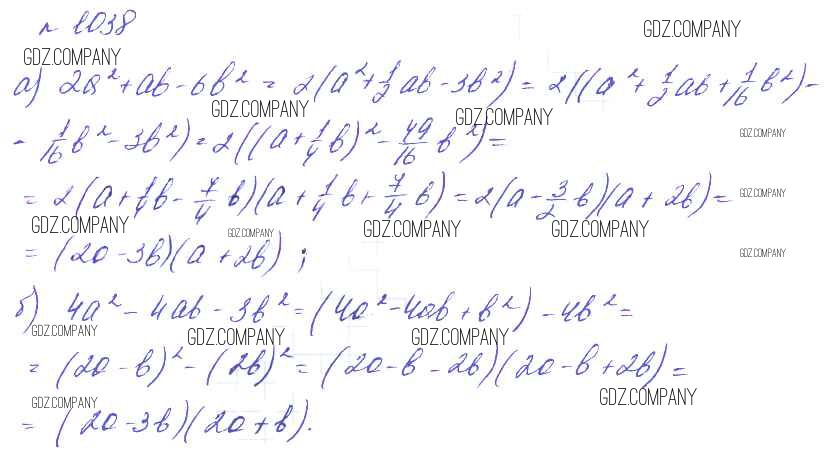 № 1038
GDZ.COMPANY
GDZ.COMPANY
а) 2a² + ab - 6b² = 2(a² + 1/2 ab - 3b²) = 2((a² + 1/2 ab + 1/16 b²) -
GDZ.COMPANY GDZ.COMPANY
- 1/16 b² - 3b²) = 2((a + 1/4 b)² - 49/16 b²) = GDZ.COMPANY
= 2(a + 1/4 b - 7/4 b)(a + 1/4 b + 7/4 b) = 2(a - 3/2 b)(a + 2b) = GDZ.COMPANY
GDZ.COMPANY GDZ.COMPANY GDZ.COMPANY GDZ.COMPANY
= (2a - 3b)(a + 2b) ; GDZ.COMPANY
б) 4a² - 4ab - 3b² = (4a² - 4ab + b²) - 4b² =
GDZ.COMPANY GDZ.COMPANY GDZ.COMPANY
= (2a - b)² - (2b)² = (2a - b - 2b)(2a - b + 2b) =
GDZ.COMPANY GDZ.COMPANY
= (2a - 3b)(2a + b).